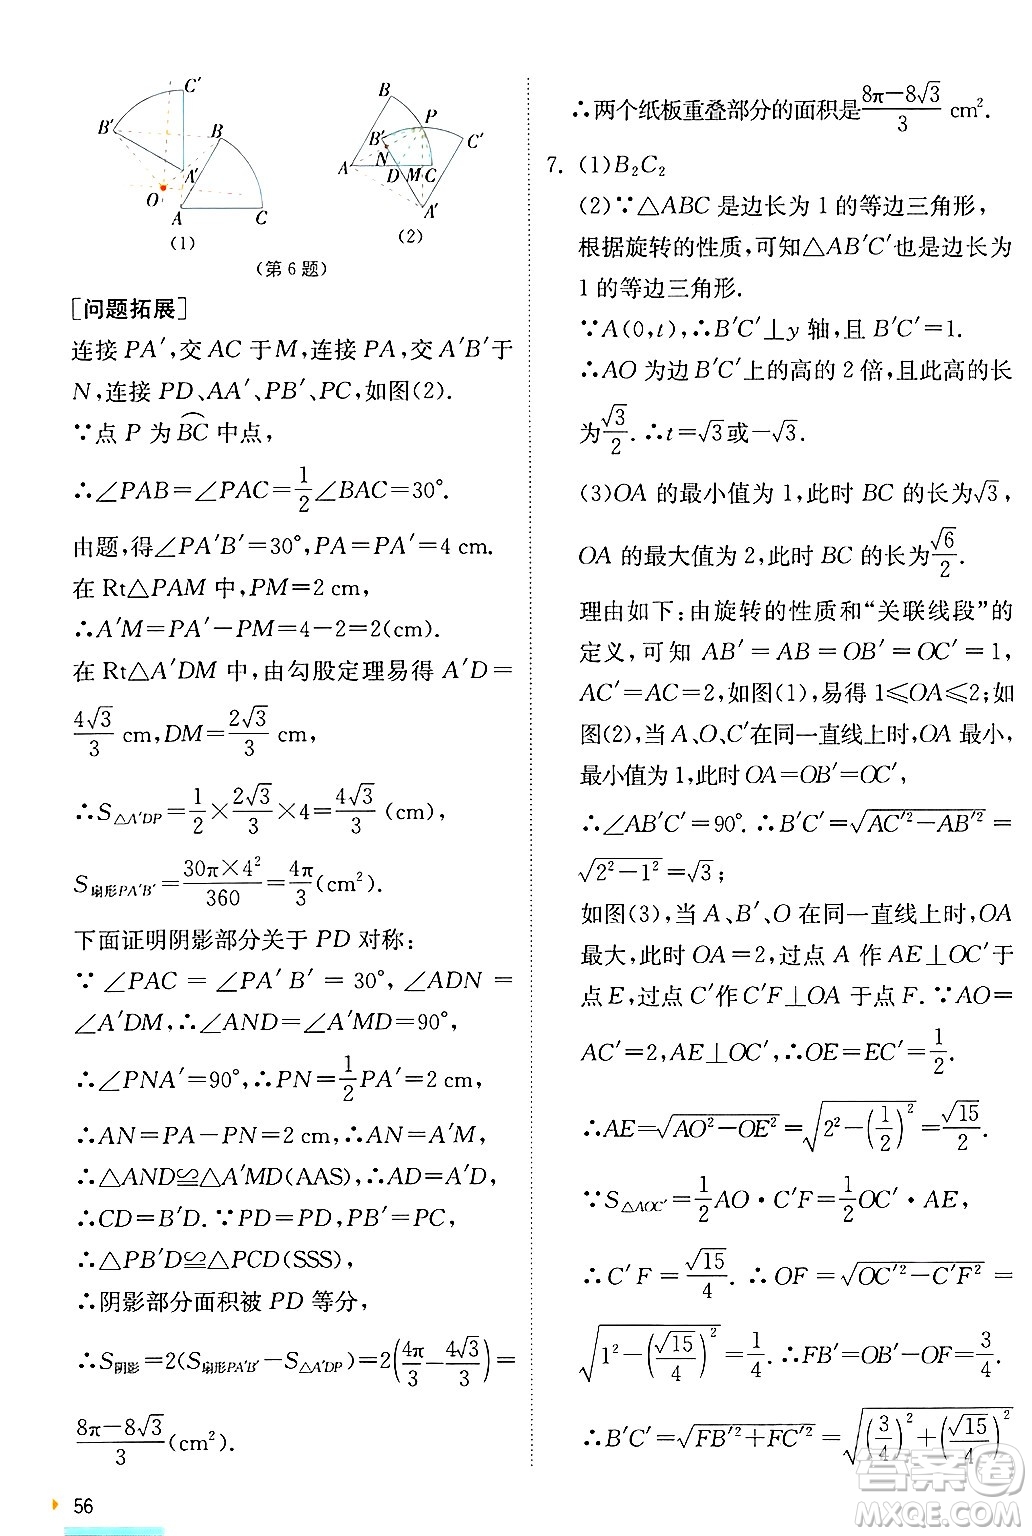 B′
C′
B
A′
O
A
C
(1)
B
P
B′
C′
N
A
D
M
C
A′
(2)
(第6题)
[问题拓展]
连接 PA′,交 AC 于 M,连接 PA,交 A′B′于
N,连接 PD、AA′、PB′、PC,如图(2).
∵点 P 为 $\overset{\frown}{BC}$ 中点,
∴∠PAB=∠PAC=$\frac{1}{2}$∠BAC=30°.
由题,得∠PA′B′=30°,PA=PA′=4 cm.
在 Rt△PAM 中,PM=2 cm,
∴A′M=PA′−PM=4−2=2(cm).
在 Rt△A′DM 中,由勾股定理易得 A′D=
$\frac{4\sqrt{3}}{3}$ cm,DM=$\frac{2\sqrt{3}}{3}$ cm,
∴$S_{△A′DP}$=$\frac{1}{2}$×$\frac{2\sqrt{3}}{3}$×4=$\frac{4\sqrt{3}}{3}$(cm),
$S_{扇形PA′B′}$=$\frac{30π×4^2}{360}$=$\frac{4π}{3}$(cm²).
下面证明阴影部分关于 PD 对称:
∵∠PAC=∠PA′B′=30°,∠ADN=
∠A′DM,∴∠AND=∠A′MD=90°,
∴∠PNA′=90°,∴PN=$\frac{1}{2}$PA′=2 cm,
∴AN=PA−PN=2 cm,∴AN=A′M,
∴△AND≌△A′MD(AAS),
∴CD=B′D.∵PD=PD,PB′=PC,
∴△PB′D≌△PCD(SSS),
∴阴影部分面积被 PD 等分,
∴$S_{阴影}$=2($S_{扇形PA′B′}$−$S_{△A′DP}$)=2($\frac{4π}{3}$−$\frac{4\sqrt{3}}{3}$)=
$\frac{8π−8\sqrt{3}}{3}$(cm²).
56
∴两个纸板重叠部分的面积是$\frac{8π−8\sqrt{3}}{3}$ cm².
7. (1)B₂C₂
(2)∵△ABC 是边长为 1 的等边三角形,
根据旋转的性质,可知△AB′C′也是边长为
1 的等边三角形.
∵A(0,t),∴B′C′⊥y 轴,且 B′C′=1.
∴AO 为边 B′C′上的高的 2 倍,且此高的长
为$\frac{\sqrt{3}}{2}$.∴t=√3或−√3.
(3)OA 的最小值为 1,此时 BC 的长为√3,
OA 的最大值为 2,此时 BC 的长为$\frac{\sqrt{6}}{2}$.
理由如下:由旋转的性质和“关联线段”的
定义,可知 AB′=AB=OB′=OC′=1,
AC′=AC=2,如图(1),易得 1⩽OA⩽2;如
图(2),当 A、O、C′在同一直线上时,OA 最小,
最小值为 1,此时 OA=OB′=OC′,
∴∠AB′C′=90°.∴B′C′=$\sqrt{AC′^2−AB′^2}$=
$\sqrt{2^2−1^2}$=√3;
如图(3),当 A、B′、O 在同一直线上时,OA
最大,此时 OA=2,过点 A 作 AE⊥OC′于
点 E,过点 C′作 C′F⊥OA 于点 F.∵AO=
AC′=2,AE⊥OC′,∴OE=EC′=$\frac{1}{2}$.
∴AE=$\sqrt{AO^2−OE^2}$=$\sqrt{2^2−(\frac{1}{2})^2}$=$\frac{\sqrt{15}}{2}$.
∵$S_{△AOC′}$=$\frac{1}{2}$AO·C′F=$\frac{1}{2}$OC′·AE,
∴C′F=$\frac{\sqrt{15}}{4}$.∴OF=$\sqrt{OC′^2−C′F^2}$=
$\sqrt{1^2−(\frac{\sqrt{15}}{4})^2}$=$\frac{1}{4}$.∴FB′=OB′−OF=$\frac{3}{4}$.
∴B′C′=$\sqrt{FB′^2+FC′^2}$=$\sqrt{(\frac{3}{4})^2+(\frac{\sqrt{15}}{4})^2}$
答案圈
MXQE.COM